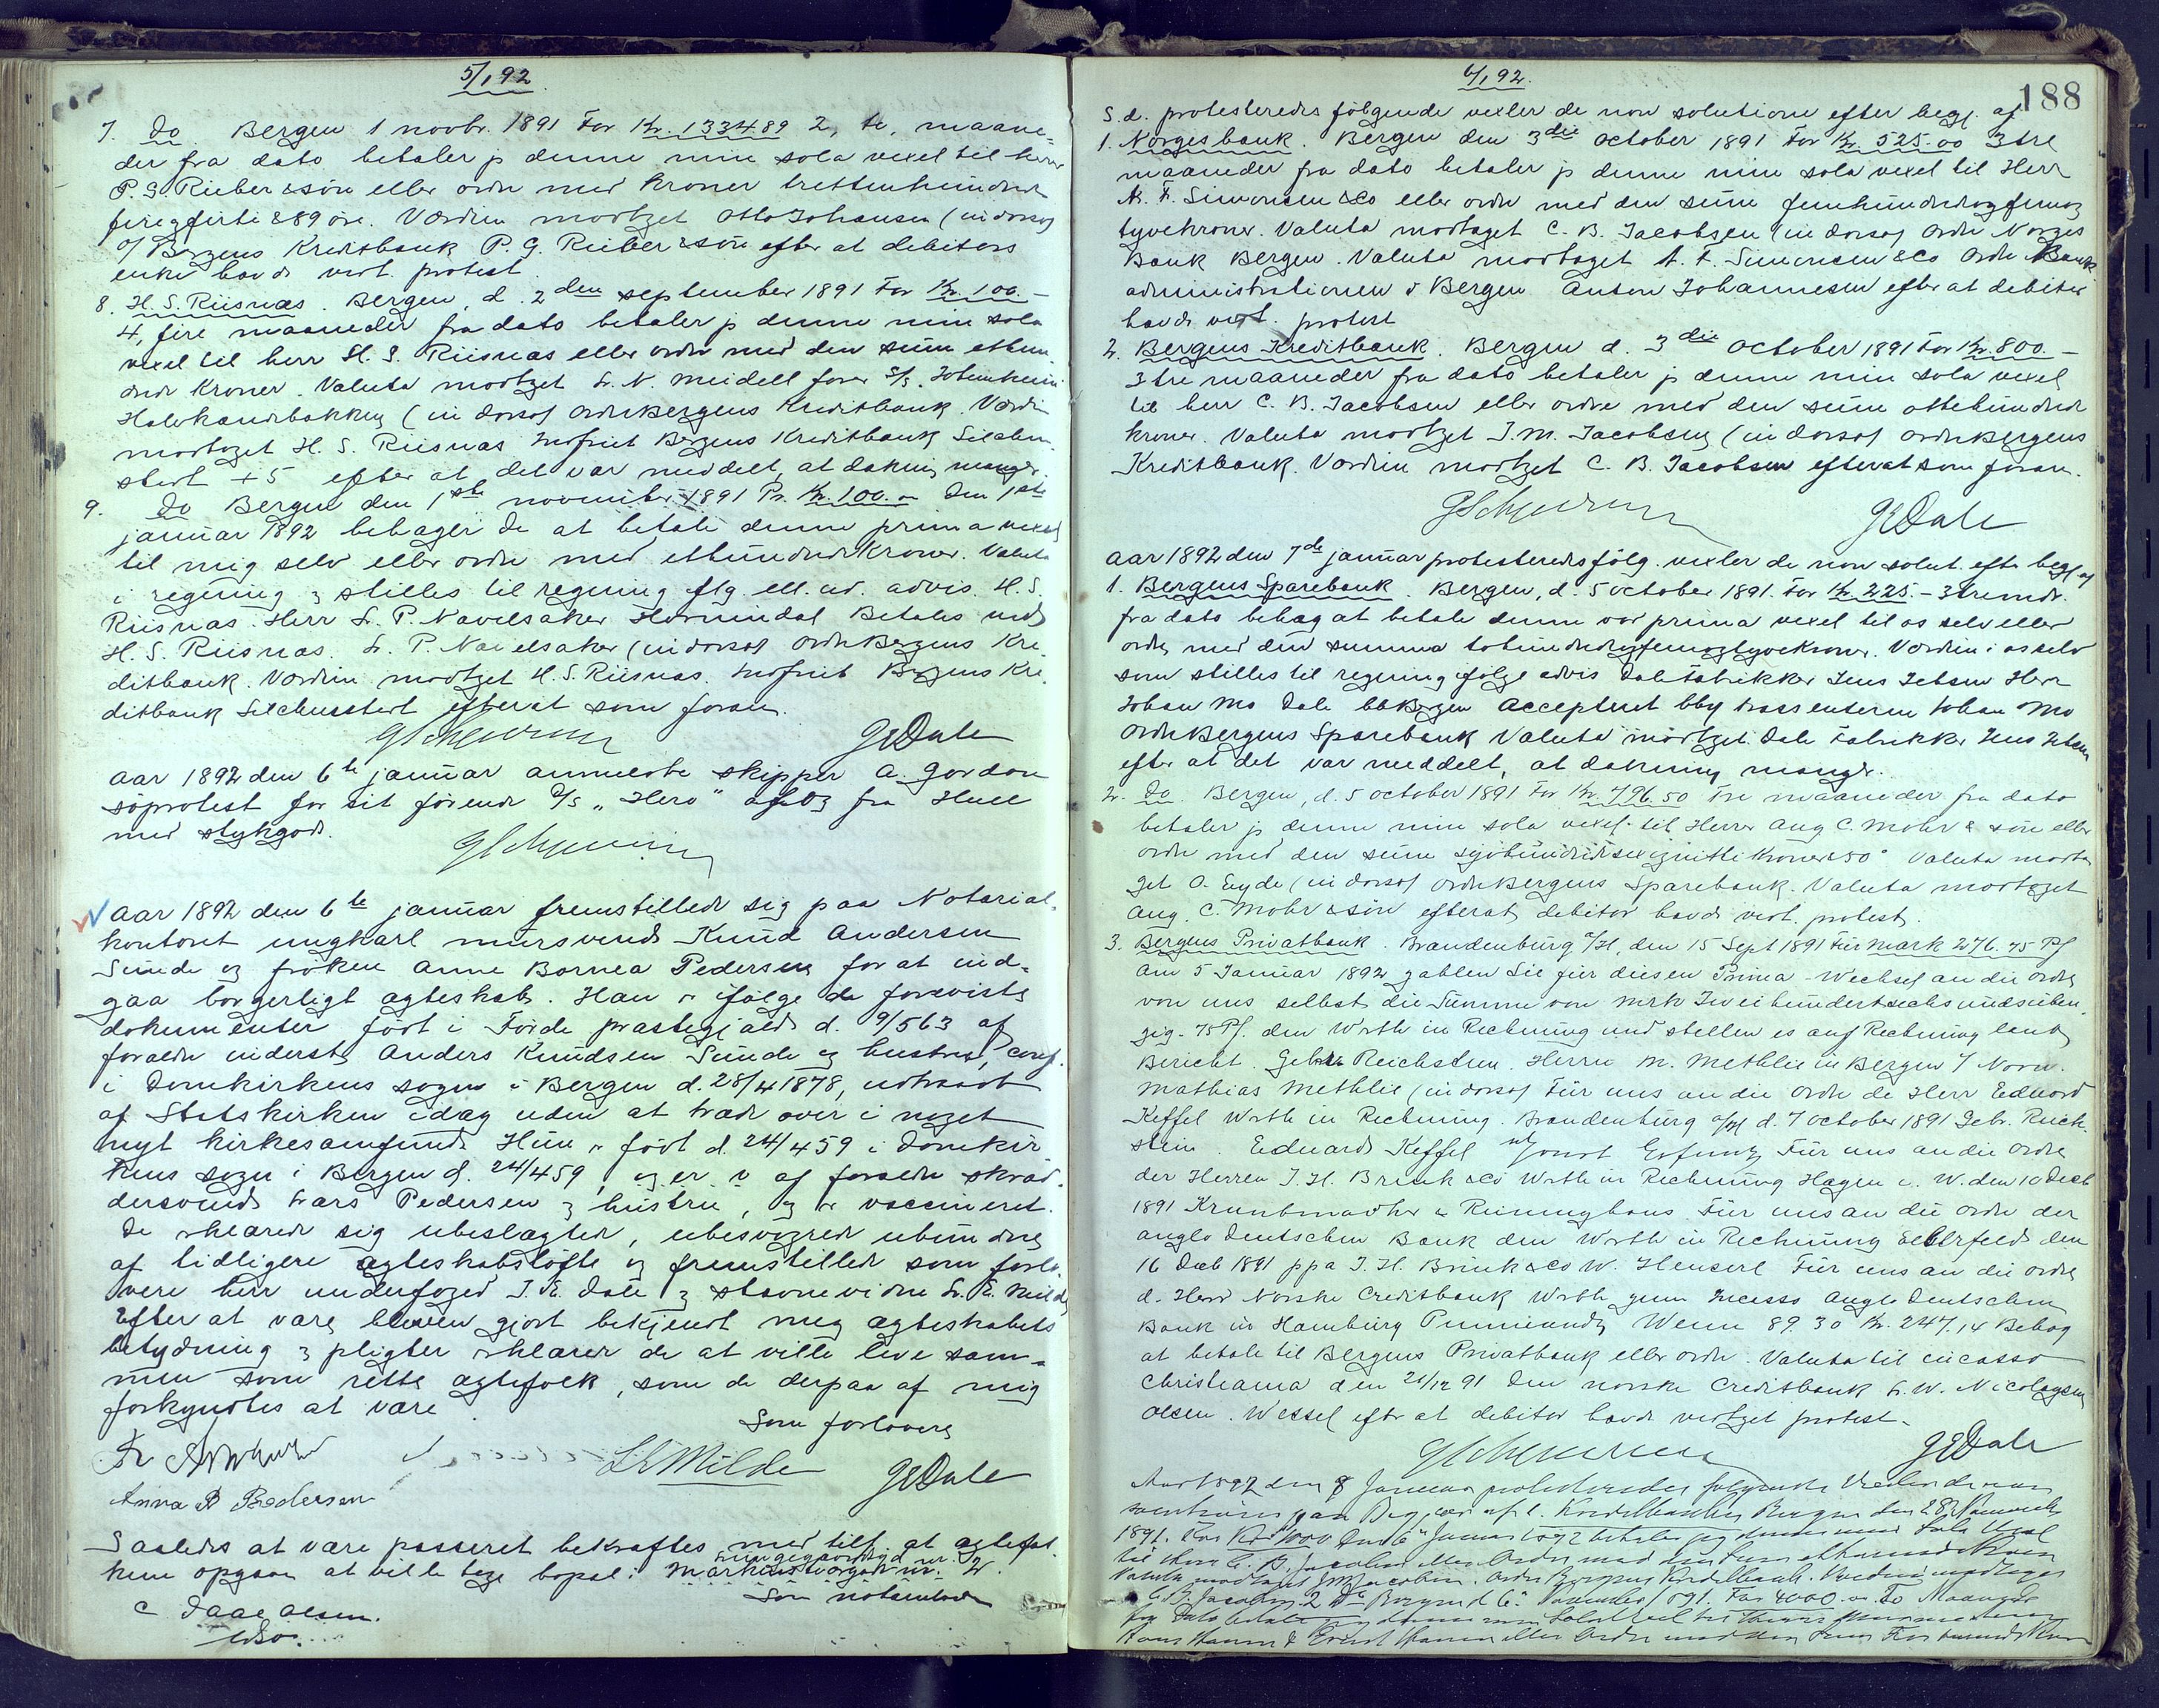 5/1 92
7. Do Bergen 1 novbr. 1891 For Kr. 1334.89 2, to, maane-
der fra dato betaler jr denne min sola vexel til herr
P. G. Rieber & søn eller ordre med Kroner trettenhundrede
firegførti & 89 øre. Værdien modtget Otto Johansen (in dorso)
o/ Bergens Kreditbank P. G. Rieber & søn efter at debitors
enke havde vist. protest.
8. H. S. Riisnæs. Bergen, d. 2den september 1891 For Kr. 100.-
4, fire maaneder fra dato betaler jr denne min sola
vexel til herr H. S. Riisnæs eller ordre med den sum ethun-
drede Kroner. Valuta modtget L. N. Meidell forer S/S. Jotunheim
(in dorso) ordre Bergens Kreditbank. Værdi
modtaget H. S. Riisnæs Bergens Kreditbank
+5 efter at det var meddelt, at dækning mangler.
9. Do Bergen den 1ste november 1891 Pr. Kr. 100.- Den 1ste
januar 1892 behager De at betale denne prima vexel
til mig selv eller ordre med ethundrede Kroner. Valuta
i regning & stilles til regning flg. ell. ud. advis. H. S.
Riisnæs. Herr L. P. Navelsaker Hornindal Betales med
H. S. Riisnæs. L. P. Navelsaker (in dorso) ordre Bergens Kre-
ditbank. Værdien modtget H. S. Riisnæs. Bergens Kre-
ditbank efterat som foran.
GEDale
Aar 1892 den 6te januar anmeldte skipper A. Gordon
søprotest for sit førende D/S "Hero" afstg fra Hull
med stykgods.
Aar 1892 den 6te januar fremstillede sig paa Notarial-
kontoret ungkarl mursvend Knud Andersen
Sunde og frøken Anne Bornea Pedersen for at ind-
gaa borgerligt ægteskab. Han er ifølge de foreviste
dokumenter født i Førde præstegjæld d. 9/5 63 af
forældre inderst Anders Knudsen Sunde og hustru, conf.
i Domkirkens sogn i Bergen d. 28/4 1878, udtraadt
af Statskirken idag uden at træde over i noget
nyt kirkesamfund. Hun er født d. 24/4 59 i Domkir-
kens sogn i Bergen d. 24/4 59, og er af forældre skræd-
dersvend Lars Pedersen & hustru, og er vaccineret.
De erklærede sig ubeslægtede, ubesvogrede ubundne
af tidligere ægteskabsløfte og fremstillede som forlo-
vere herr underfoged J. E. Dale & stævnevidne L. K. Milde
Efter at være bleven gjort bekjendt med ægteskabets
betydning & pligter erklærer de at ville leve sam-
men som rette ægtefolk, som de derpaa af mig
forkyndtes at være.
Som forlovere
LKMilde GEDale
Anna B Pedersen
Saaledes at være passeret bekræftes med tilf. at ægtefol-
kene opgav at ville tage bopæl i nr. 2.
Som notarialvidner
C Daae Olsen.
188
6/1 92.
S. d. protesteredes følgende vexler de non solutione efter begj. af
1. Norges bank. Bergen den 3die October 1891 For Kr. 525.00 3 tre
maaneder fra dato betaler jr denne min sola vexel til Herr
A. F. Simonsen & Co eller ordre med den sum femhundredeogfemog
tyvekroner. Valuta modtaget C. B. Jacobsen (in dorso) Ordre Norges
Bank Bergen. Valuta modtaget A. F. Simonsen & Co Ordre Bank
administrationen i Bergen Anton Johannesen efter at debitor
havde vist. protest
2. Bergens Kreditbank. Bergen d. 3die October 1891 For Kr. 800.-
3 tre maaneder fra dato betaler jr denne min sola vexel
til herr C. B. Jacobsen eller ordre med den sum ottehundrede
kroner. Valuta modtget J. M. Jacobsen (in dorso) ordre Bergens
Kreditbank. Værdien modtget C. B. Jacobsen efterat som foran.
GEDale
Aar 1892 den 7de januar protesteredes følg. vexler de non solut. efter begj. af
1. Bergens Sparebank. Bergen, d. 5 october 1891. For Kr. 225.- 3 tre mdr.
fra dato behag at betale denne vor prima vexel til os selv eller
ordre, med den summa tohundredeogfemogtyvekroner. Værdien i os selv
som stilles til regning ifølge advis Dale Fabrikker Jens Jebsen Herr
Johan Mo Dale Bergen Accepteret Johan Mo
Ordre Bergens Sparebank Valuta modtget. Dale Fabrikker Jens Jebsen
efter at det var meddelt, at dækning mangler.
2. Do. Bergen, d. 5 october 1891 For Kr. 796.50 Tre maaneder fra dato
betaler jr denne min sola vexel til Herrer Aug C. Mohr & søn eller
ordre med den sum syvhundredesexognitti Kroner & 50 Valuta modta-
get O. Eyde (in dorso) Ordre Bergens Sparebank. Valuta modtaget
Aug. C. Mohr & søn efterat debitor havde vist. protest.
3. Bergens Privatbank. Brandenburg a/H, den 15 Sept 1891 Für Mark 276.75 Pf
Am 5 Januar 1892 zahlen Sie für diesen Prima-Wechsel an die Ordre
von uns selbst die Summe von Mrk Zweihundertsechsundsieben-
zig-75 Pf. den Werth in Rechnung und stellen es auf Rechnung laut
Bericht. Gebr. Reichstein. Herrn M. Methlie in Bergen i/ Norw.
Mathias Methlie (in dorso) Für uns an die Ordre de Herr Eduard
Keffel Werth in Rechnung. Brandenburg a/H d. 7 october 1891 Gebr. Reich-
stein. Eduard Keffel Für uns an die Ordre
der Herren J. H. Brink & Co Werth in Rechnung Hagen i. W. den 10 Decb
1891 Für uns an die Ordre der
Anglo Deutschen Bank den Werth in Rechnung Elberfeld den
16 Decb 1891 ppa J. H. Brink & Co W. Für uns an die Ordre
d. Herr Norske Creditbank Werth zum Incasso Anglo Deutschen
Bank in Hamburg 89.30 Kr. 247.14 Behag
at betale til Bergens Privatbank eller ordre. Valuta til incasso
Christiania den 21/12 91 Den norske Creditbank L. W. Nicolaysen
Olsen. Wessel efter at debitor havde vedtget protest.
GEDale
Aar 1892 den 8 Januar protesteredes følgende Vexler de non
solutione paa Begjær af 1. Kreditbanken Bergen den 28
1891. For Kr 1000 Den 6 Januar 1892 betaler jeg denne min Sola Vexel
til Herr C. B. Jacobsen eller Ordre med den Sum ettusinde Kroner
Valuta modtaget J M Jacobsen. Ordre Bergens Kreditbank. Værdien modtaget
C. B. Jacobsen 2 Do Bergen d 6 November 1891. For 4000.00 To Maaneder
fra Dato betaler jeg denne min Sola Vexel til
Hansen & Hansen eller Ordre med den Sum Fire tusinde Kroner